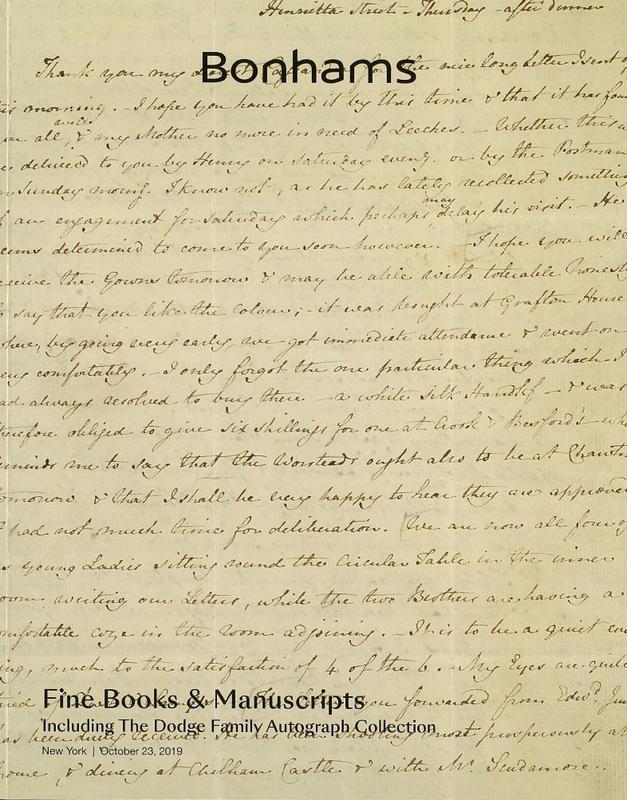 Henrietta Street - Thursday - after dinner
Bonhams
Thank you my dearest for the nice long Letter I sent
is morning. - I hope you have had it by this time & that it has fou
all, & my Mother no more in need of Leeches. - Whether this
delivered to you by Henry on Saturday eveng. or by the Postman
Sunday morng. I know not, as he has lately recollected somethin
an engagement for Saturday which perhaps may delay his visit. - He
eems determined to come to you soon however. - I hope you will
eceive the Gown tomorrow & may be able with tolerable honesty
to say that you like the Colour; - it was bought at Grafton House
where, by going very early, we got immediate attendance & went on
ery comfortably. - I only forgot the one particular thing which I
ad always resolved to buy there - a white silk Handkf - & was
therefore obliged to give six shillings for one at Crook & Besford's - wh
eminds me to say that the Worsteds ought also to be at Chawt
omorrow & that I shall be very happy to hear they are approved
I had not much time for deliberation. We are now all four of
s young Ladies sitting round the Circular Table in the inner
oom writing our Letters, while the two Brothers are having a
omfortable coze in the room adjoining. - It is to be a quiet eve
ing, much to the satisfaction of 4 of the 6. - My Eyes are quite
tired of you forwarded from Edwd.
Fine Books & Manuscripts
Including The Dodge Family Autograph Collection
has been He has been shooting most prosperously at
New York | October 23, 2019
home, & dining at Chilham Castle & with Mr. Scudamore.